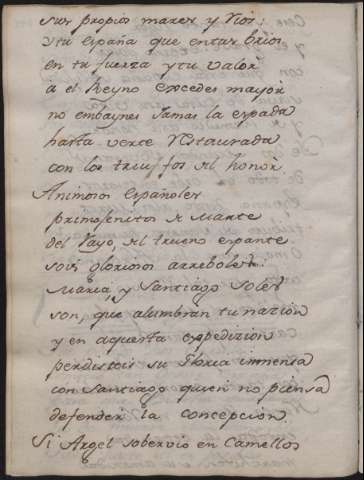 sus propios mares, y Rios;
y tu España que en tan brios
en tu fuerza y tu valor
a el Reyno excedes mayor
no embaynes jamas la espada
hasta verte restaurada
con los triunfos del honor.
Animosos Españoles
primogenitos de Marte
del Rayo, del trueno espante
sois gloriosos arreboles:
Maria, y Santiago soles
son, que alumbran tu nazion
y en aquesta expedizion
perdistois su Gloria immensa
con Santiago quien no piensa
defender la concepcion.
Si Argel sobervio en Camellos